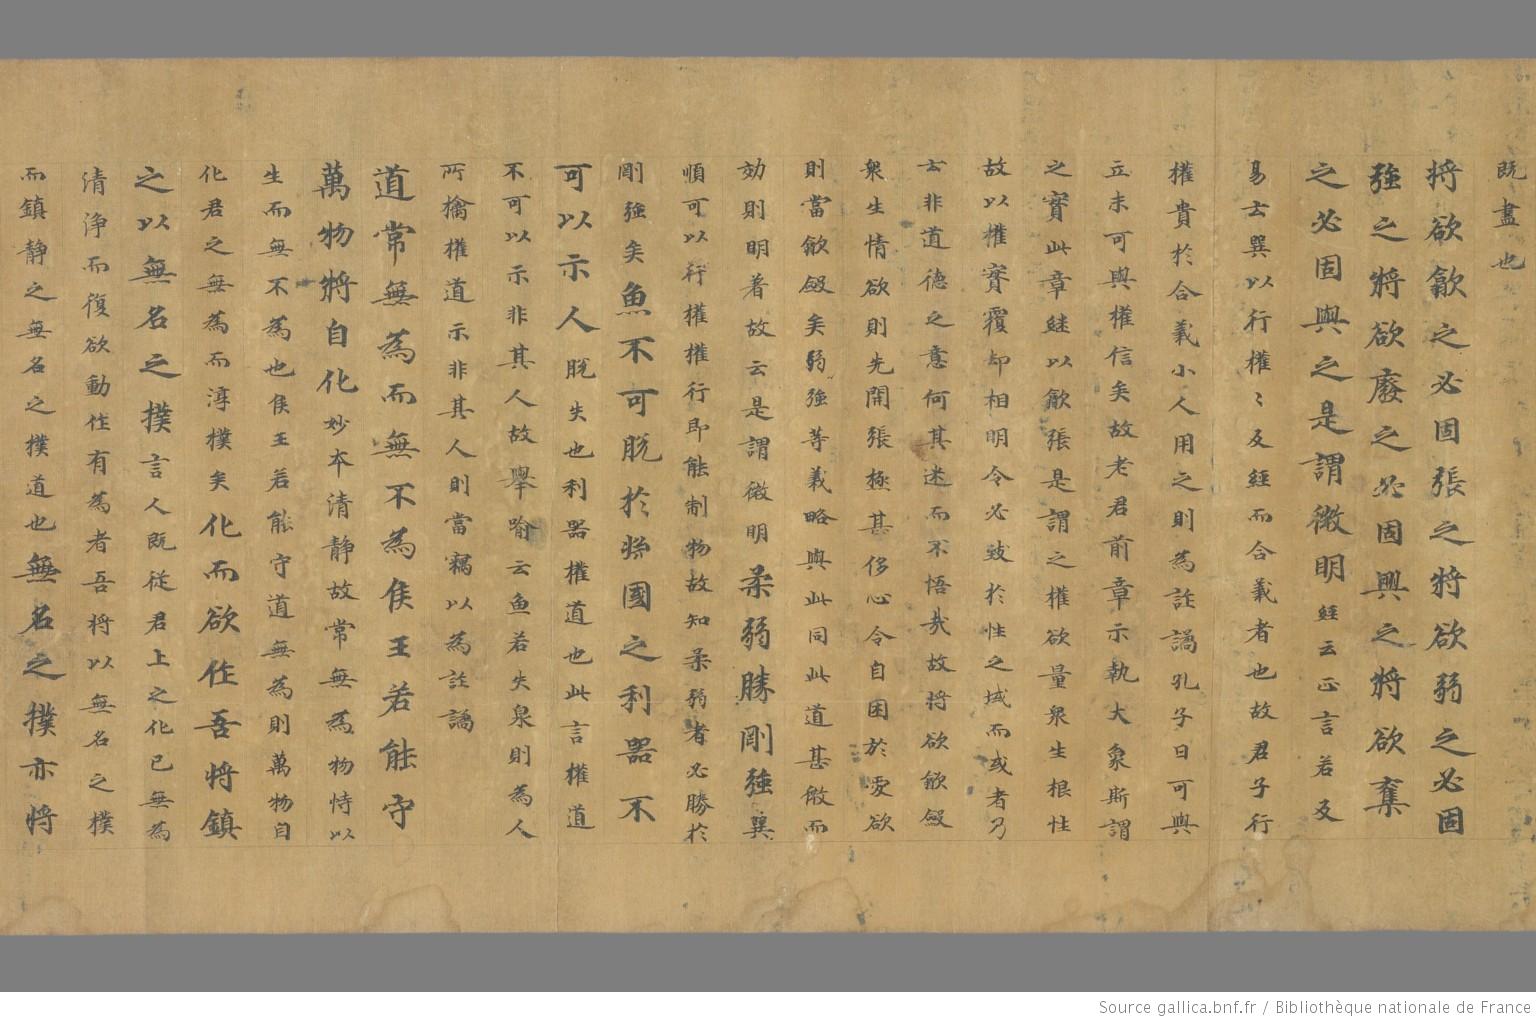 既盡也
將欲歙之必固張之將欲弱之必固
強之將欲廢之必固興之將欲奪
之必固與之是謂微明經云正言若反
易云巽以行權〻反經而合義者也故君子行
權貴於合義小人用之則為詐譎孔子曰可與
立未可與權信矣故老君前章示執大象斯謂
之實此章繼以歙張是謂之權欲量衆生根性
故以權實覆却相明令必致於性之域而或者乃
云非道德之意何其迷而不悟哉故將欲歙斂
衆生情欲則先開張極其侈心令自困於愛欲
則當歙斂矣弱強等義略與此同此道甚微而
効則明著故云是謂微明柔弱勝剛強巽
順可以行權權行即能制物故知柔弱者必勝於
剛強矣魚不可脫於泉國之利器不
可以示人脫失也利器權道也此言權道
不可以示非其人故舉喻云魚若失泉則為人
所擒權道示非其人則當竊以為詐譎
道常無為而無不為侯王若能守
萬物將自化妙本清靜故常無為物恃以
生而無不為也侯王若能守道無為則萬物自
化君之無為而淳樸矣化而欲作吾將鎮
之以無名之樸言人既從君上之化已無為
清淨而復欲動作有為者吾將以無名之樸
而鎮靜之無名之樸道也無名之樸亦將
Source gallica.bnf.fr / Bibliothèque nationale de France